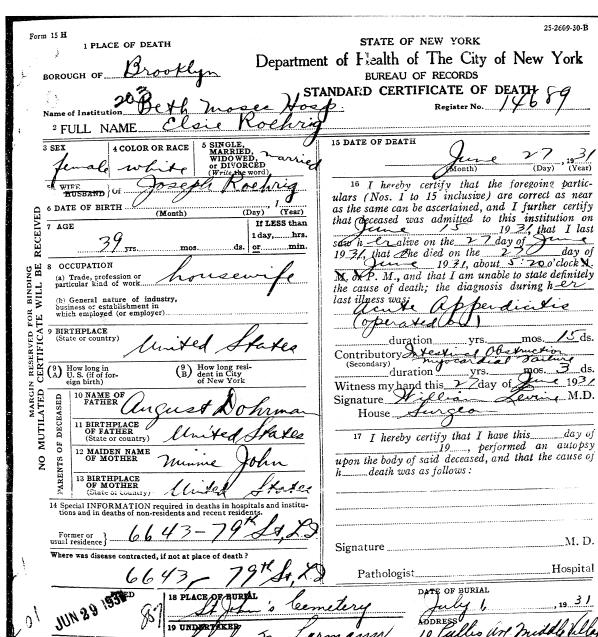 Form 15 H
25-2609-30-B
1 PLACE OF DEATH
BOROUGH OF Brooklyn
Name of Institution Beth Moses Hosp.
2 FULL NAME Elsie Roehrig
STATE OF NEW YORK
Department of Health of The City of New York
BUREAU OF RECORDS
STANDARD CERTIFICATE OF DEATH
Register No. 14689
MARGIN RESERVED FOR BINDING
NO MUTILATED CERTIFICATE WILL BE RECEIVED
3 SEX female
4 COLOR OR RACE white
5 SINGLE, MARRIED, WIDOWED, or DIVORCED (Write the word) married
WIFE HUSBAND Of Joseph Roehrig
6 DATE OF BIRTH
(Month) (Day) (Year)
7 AGE 39 yrs. mos. ds.
If LESS than 1 day, hrs. or min.
8 OCCUPATION
(a) Trade, profession or particular kind of work housewife
(b) General nature of industry, business or establishment in which employed (or employer)
9 BIRTHPLACE (State or country) United States
(9/A) How long in U. S. (if of foreign birth)
(9/B) How long resident in City of New York
PARENTS OF DECEASED
10 NAME OF FATHER August Dohrman
11 BIRTHPLACE OF FATHER (State or country) United States
12 MAIDEN NAME OF MOTHER Minnie John
13 BIRTHPLACE OF MOTHER (State or country) United States
14 Special INFORMATION required in deaths in hospitals and institutions and in deaths of non-residents and recent residents.
Former or usual residence 6643-79th St, L.I
Where was disease contracted, if not at place of death?
6643 79th St, L.I
15 DATE OF DEATH
June 27, 1931
(Month) (Day) (Year)
16 I hereby certify that the foregoing particulars (Nos. 1 to 15 inclusive) are correct as near
as the same can be ascertained, and I further certify
that deceased was admitted to this institution on
June 15 1931, that I last
saw her alive on the 27 day of June
1931, that she died on the day of
June 1931, about 5:20 o'clock
A. M. or P. M., and that I am unable to state definitely
the cause of death; the diagnosis during her
last illness was:
Acute Appendicitis
(operated on)
duration yrs. mos. 15 ds.
Contributory Intestinal Obstruction
(Secondary) myocardial failure
duration yrs. mos. 3 ds.
Witness my hand this 27 day of June 1931
Signature William Levine M.D.
House Surgeon
17 I hereby certify that I have this day of
19 , performed an autopsy
upon the body of said deceased, and that the cause of
h death was as follows:
Signature M. D.
Pathologist Hospital
JUN 29 1931
18 PLACE OF BURIAL
St John's Cemetery
DATE OF BURIAL
July 1, 1931
19 UNDERTAKER
ADDRESS